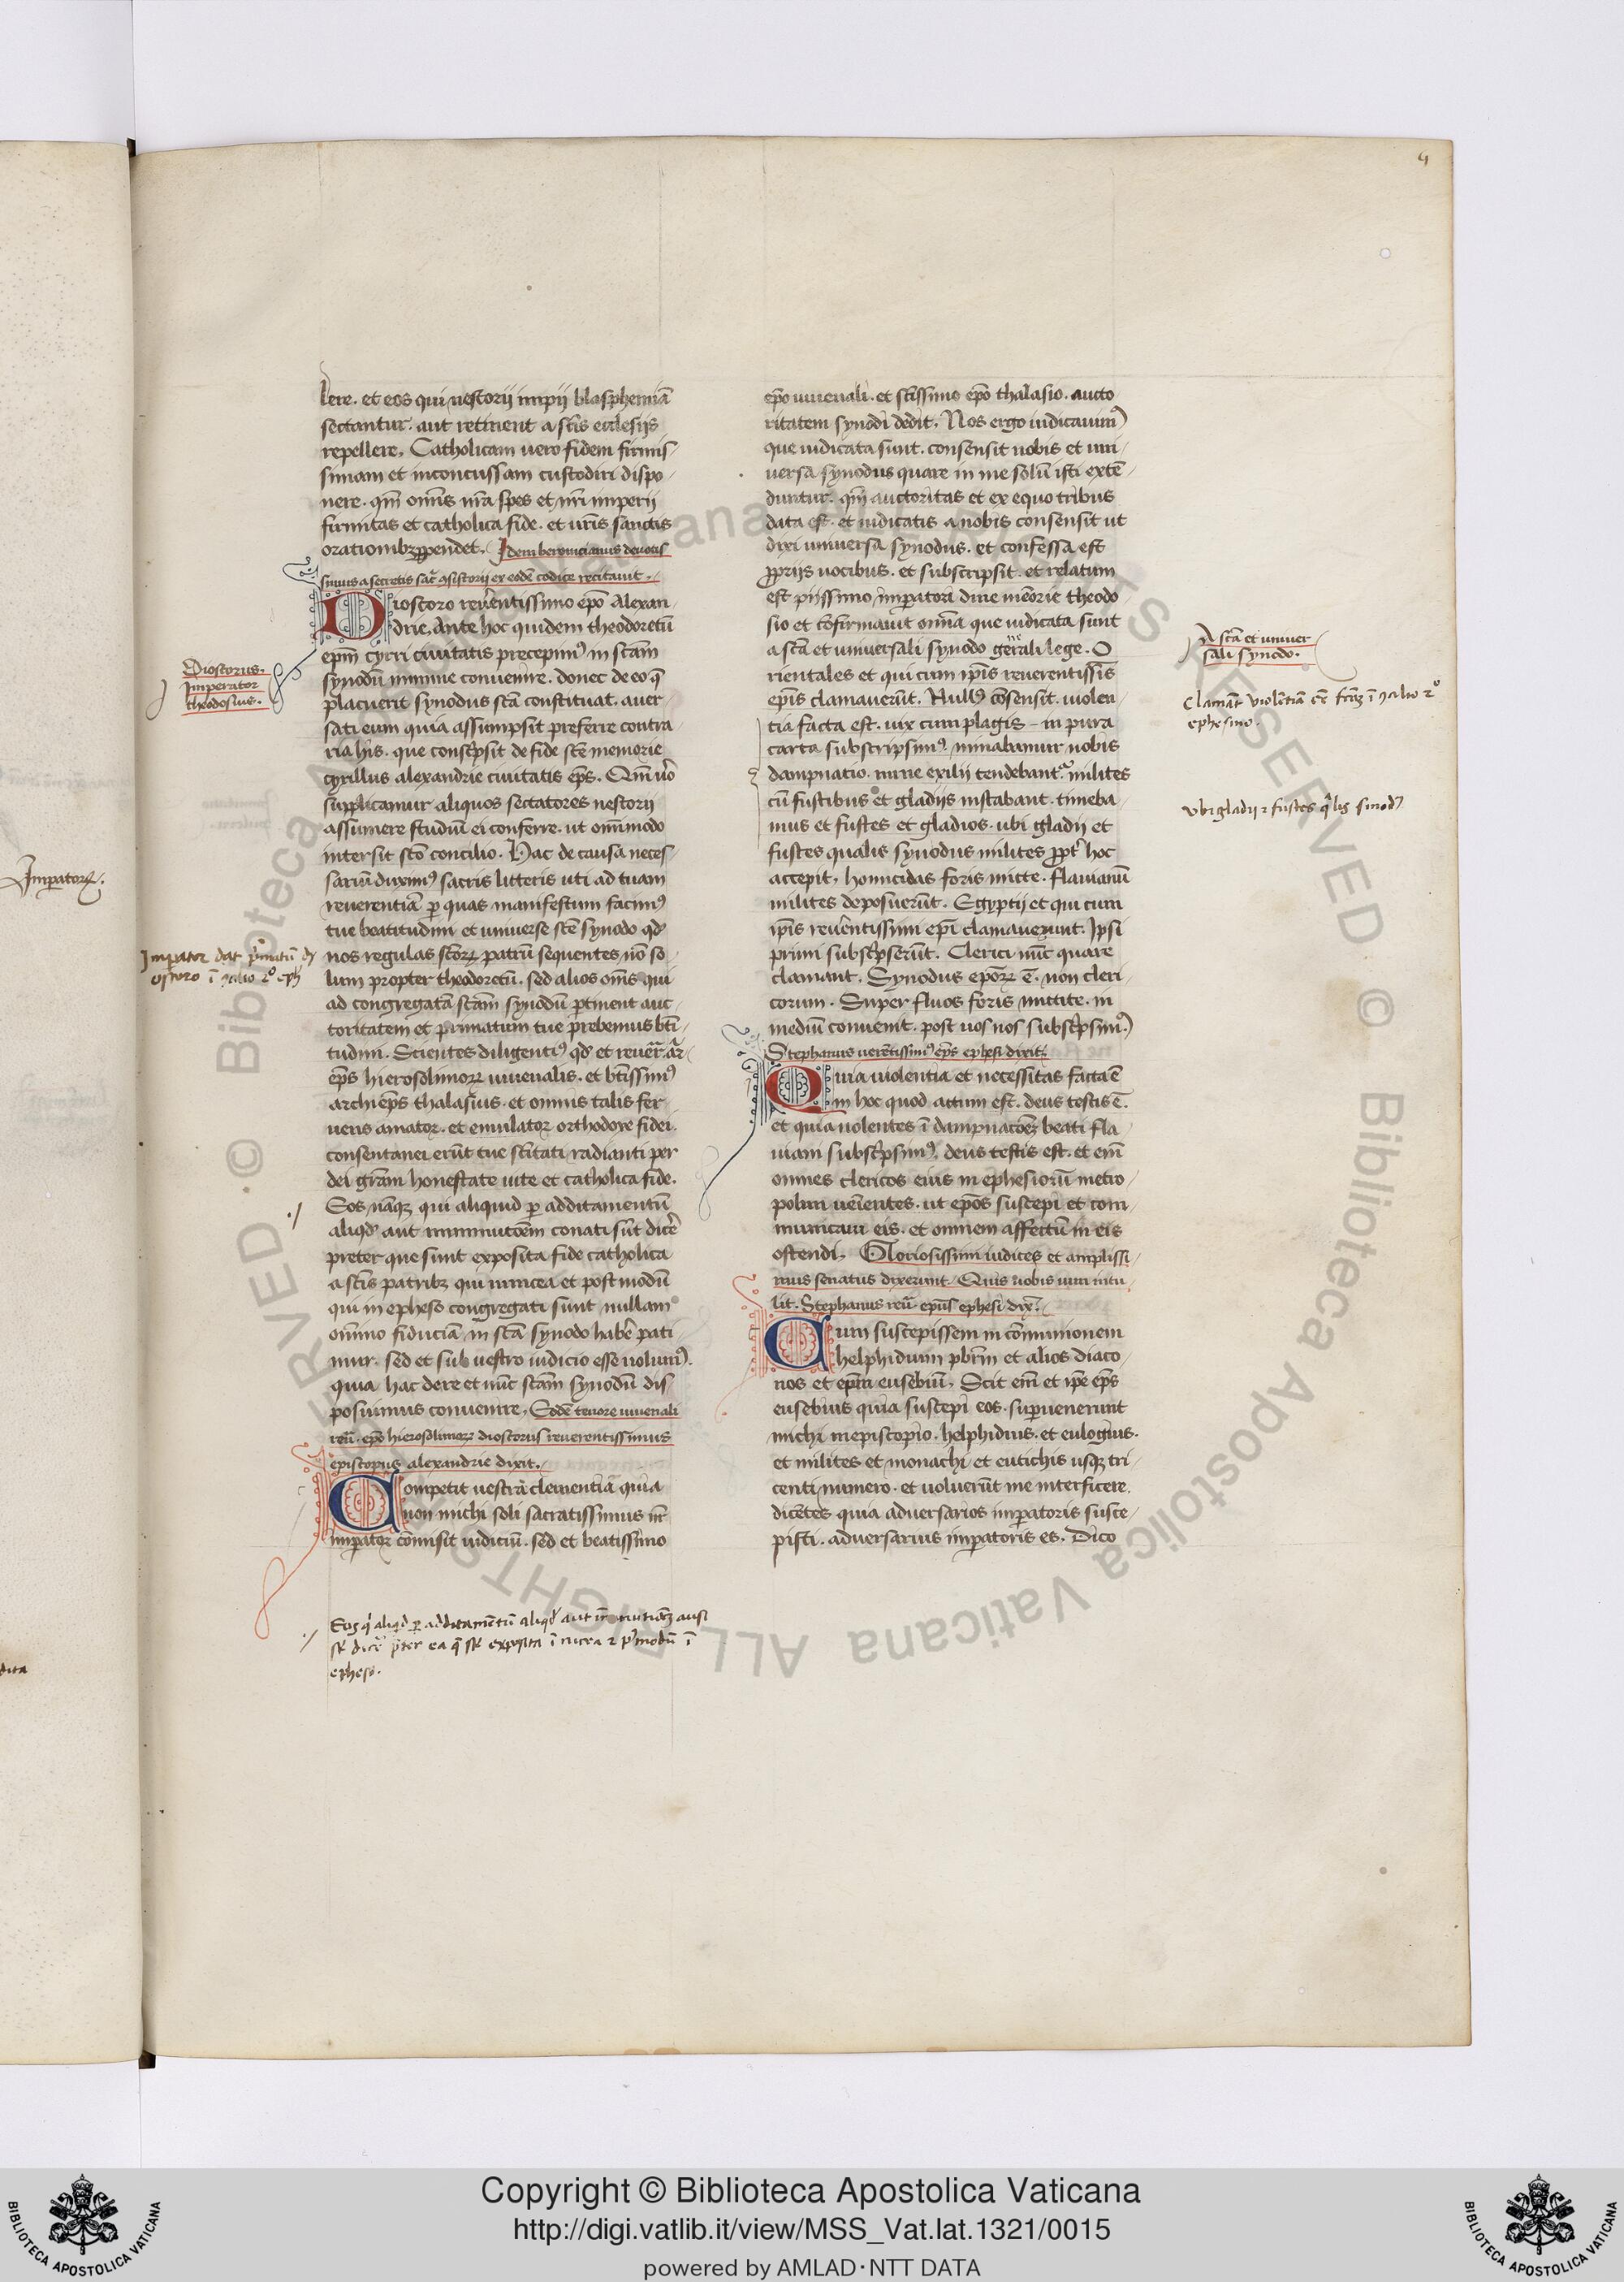 4
lere. et eos qui nestorij impij blasphemiā
sectantur. aut retinent a sc̄is ecclesijs
repellere. Catholicam uero fidem firmis-
simam et inconcussam custodiri dispo-
nere. qm̄ om̄is nr̄a spes et nr̄i imperij
firmitas et catholica fide. et ur̄is sanctis
orationibꝫ ꝑpendet. Idem beronicianus deuotis
simus a secretis sac̄ ꝯsistorij ex eodē codice recitauit.
Dioscoro reuerentissimo ep̄o Alexan-
drie. Ante hoc quidem theodoretū
ep̄m cyrri ciuitatis precepimꝰ in sc̄am
synodū minime conuenire. donec de eo q̄
placuerit synodus sc̄a constituat. auer
sati eum quia assumpsit preferre contra
ria his. que consc̄psit de fide sc̄e memorie
cyrillus alexandrie ciuitatis ep̄s. Qm̄ uo
supplicamur aliquos sectatores nestorij
assumere studiū ei conferre. ut om̄imodo
intersit sc̄o concilio. Hac de causa neces-
sariū duximꝰ sacris litteris uti ad tuam
reuerentiā ꝑ quas manifestum facimꝰ
tue beatitudini et uniuerse sc̄e synodo qd
nos regulas sc̄orꝝ patrū sequentes nō so-
lum propter theodoretū. sed alios om̄s qui
ad congregatā sc̄am synodū ꝑtinent auc-
toritatem et primatum tue prebemus bt̄i-
tudini. Scientes diligentiꝰ qd et reuer̄ ar-
ep̄s hierosolimorꝝ iuuenalis. et bt̄issimꝰ
archiep̄s thalasius. et omnis talis fer
uens amator. et emulator orthodoxe fidei.
consentanei erūt tue sc̄itati radianti per
dei gr̄am honestate uite et catholica fide.
Eos nāqꝫ qui aliquid ꝑ additamentū
aliqd aut imminutōem conati sūt dicē
preter que sunt exposita fide catholica
a sc̄is patribꝫ qui in nicea et post modū
qui in epheso congregati sunt nullam
om̄ino fiduciā in sc̄a synodo habē pati
mur. sed et sub uestro iudicio esse uolumꝰ.
quia hac de re et nūc sc̄am synodū dis-
posuimus conuenire. Eodē tenore iuuenali
reu. ep̄o hierosolimorꝝ dioscorus reuerentissimus
episcopus alexandrie dixit.
Competit uestra clementia quia
non michi soli sacratissimus nr̄
imꝑator cōmisit iudiciū. sed et beatissimo
ep̄o iuuenali. et sc̄issimo ep̄o thalasio. aucto
ritatem synodi dedit. Nos ergo iudicauimꝰ
que iudicata sunt. consensit nobis et uni-
uersa synodus quare in me solū isti extē-
duntur. qm̄ auctoritas et ex equo tribus
data est. et iudicatis a nobis consensit ut
dixi uniuersa synodus. et confessa est
ꝓprijs uocibus. et subscripsit. et relatum
est pijssimo imꝑatori diue mēorie theodo-
sio et cōfirmauit om̄ia que iudicata sunt
a sc̄a et uniuersali synodo gen̄ali lege. O
rientales et qui cum ip̄is reuerentissis
ep̄is clamauerūt. Nullꝰ cōsensit. uiolen-
tia facta est. uix cum plagis in pura
carta subscripsimꝰ minabamur nobis
dampnatio. nune exilij tendebant. milites
cū fustibus et gladijs instabant. timeba-
mus et fustes et gladios. ubi gladij et
fustes qualis synodus milites ꝓpt hoc
accepit. homicidas foris mitte. flauianū
milites deposuerūt. Egyptij et qui cum
ip̄is reuerentissimi ep̄i clamauerunt. Ipsi
primi subsc̄pserūt. Clerici nūc quare
clamant. Synodus ep̄orꝝ ē. non cleri-
corum. Super fluos foris mittite. in
mediū conuenit. post uos nos subsc̄psimꝰ
Stephanus uerētissimꝰ ep̄s ephesi dixit.
Quia uiolentia et necessitas facta ē
in hoc quod actum est. deus testis ē.
et quia nolentes ī dampnacōem beati fla-
uiani subsc̄psimꝰ. deus testis est. et em̄
omnes clericos eius in ephesiorū metro-
polim ueientes. ut ep̄os suscepi et com-
municaui eis. et omnem affectū in eis
ostendi. Gloriosissimi iudices et amplissi-
mus senatus dixerunt. Quis uobis uim intu-
lit. Stephanus reu ep̄us ephesi dix̄.
Cum suscepissem in cōmunionem
helphidium pb̄rm et alios diaco-
nos et ep̄m eusebiū. Scit em̄ et ip̄e ep̄s
eusebius quia suscepi eos. suꝑuenerunt
michi in episcopio. helphidius. et eulogius.
et milites et monachi et eutichis usqꝫ tri-
centi numero. et uoluerūt me interficere.
dicētes quia aduersarios imꝑatoris susce-
pisti. aduersarius imꝑatoris es. Dico
Dioscorus.
Imperator
theodosiuꝰ.
Imꝑator dat p̄matū dy
oscoro ī ꝯcilio 2º eph̄
Eos q aliqd ꝑ additamētū aliqd aut
epheso.
A sc̄a et uniuer
sali synodo.
Clamāt violētiā ī ꝯcilio 2º
ephesino.
Vbi gladij ⁊ fustes qlis sinodꝰ
Imperator.
Copyright © Biblioteca Apostolica Vaticana
http://digi.vatlib.it/view/MSS_Vat.lat.1321/0015
powered by AMLAD·NTT DATA
BIBLIOTECA APOSTOLICA VATICANA
BIBLIOTECA APOSTOLICA VATICANA